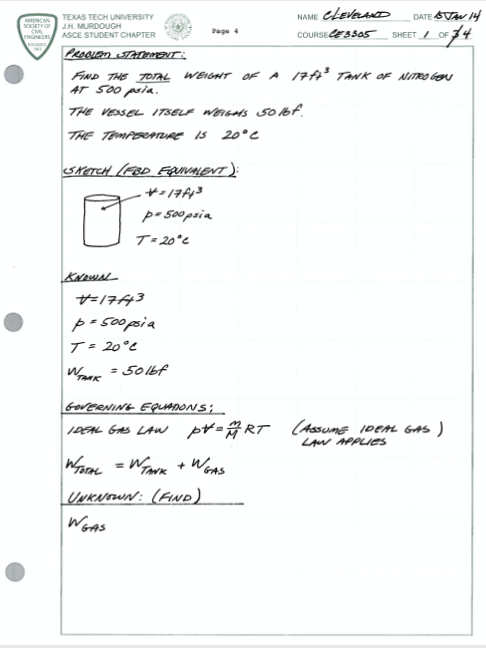 AMERICAN
SOCIETY OF
CIVIL
ENGINEERS
FOUNDED
1852
TEXAS TECH UNIVERSITY
J.H. MURDOUGH
ASCE STUDENT CHAPTER
Page 4
NAME CLEVELAND DATE 15 JAN 14
COURSE CE3305 SHEET 1 OF 4
PROBLEM STATEMENT:
FIND THE TOTAL WEIGHT OF A 17 ft³ TANK OF NITROGEN
AT 500 psia.
THE VESSEL ITSELF WEIGHS 50 lbf.
THE TEMPERATURE IS 20°C
SKETCH (FBD EQUIVALENT):
V = 17 ft³
p = 500 psia
T = 20°C
KNOWN
V = 17 ft³
p = 500 psia
T = 20°C
W_TANK = 50 lbf
GOVERNING EQUATIONS:
IDEAL GAS LAW pV = m/M RT (ASSUME IDEAL GAS)
LAW APPLIES
W_TOTAL = W_TANK + W_GAS
UNKNOWN: (FIND)
W_GAS